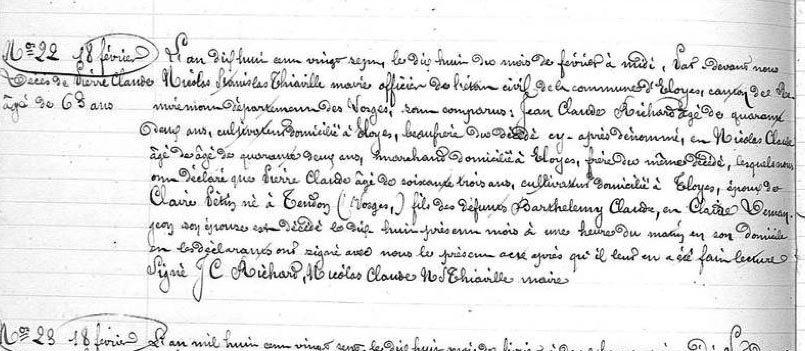 Nos 22 18 février
Décès de Pierre Claude
âgé de 63 ans
L'an dix huit cent vingt sept, le dix huit du mois de février à midi, Par-devant nous
Nicolas Stanislas Thiaville maire officier de l'état civil de la commune d'Eloyes, canton de Re-
miremont département des Vosges, sont comparus: Jean Claude Richard âgé de quarante
deux ans, cultivateur domicilié à Eloyes, beaufrère du décédé cy-après dénommé, et Nicolas Claude
âgé de âgé de quarante deux ans, marchand domicilié à Eloyes, frère du même décédé, lesquels nous
ont déclaré que Pierre Claude âgé de soixante trois ans, cultivateur domicilié à Eloyes, époux de
Claire Pétin né à Tendon (Vosges,) fils des défunts Barthelemy Claude, et Claire Deman-
geon son épouse est décédé le dix huit présent mois à une heure du matin en son domicile
et les déclarants ont signé avec nous le présent acte après qu'il leur en a été fait lecture
Signé J C Richard, Nicolas Claude N S Thiaville maire
Nos 23 18 février
L'an mil huit cent vingt sept, le dix huit